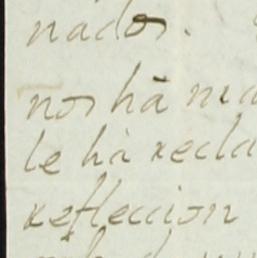 nados.
nos hà ma
le hà recla
refleccion